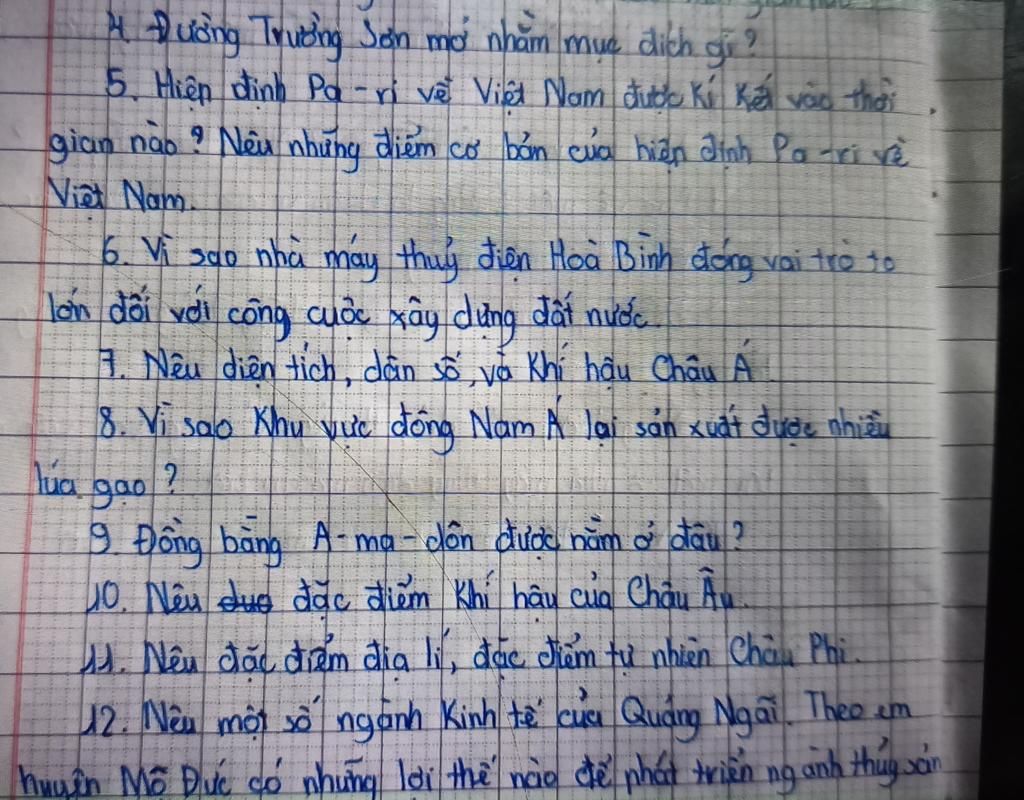 4. Đường Trường Sơn mở nhằm mục đích gì?
5. Hiệp định Pa-ri về Việt Nam được kí kết vào thời
gian nào? Nêu những điểm cơ bản của hiệp định Pa-ri về
Việt Nam.
6. Vì sao nhà máy thuỷ điện Hoà Bình đóng vai trò to
lớn đối với công cuộc xây dựng đất nước.
7. Nêu diện tích, dân số, và khí hậu Châu Á
8. Vì sao khu vực đông Nam Á lại sản xuất được nhiều
lúa gạo?
9. Đồng bằng A-ma-dôn được nằm ở đâu?
10. Nêu đặc điểm khí hậu của Châu Âu.
11. Nêu đặc điểm địa lí, đặc điểm tự nhiên Châu Phi.
12. Nêu một số ngành kinh tế của Quảng Ngãi. Theo em
huyện Mô Đức có những lợi thế nào để phát triển ngành thủy sản